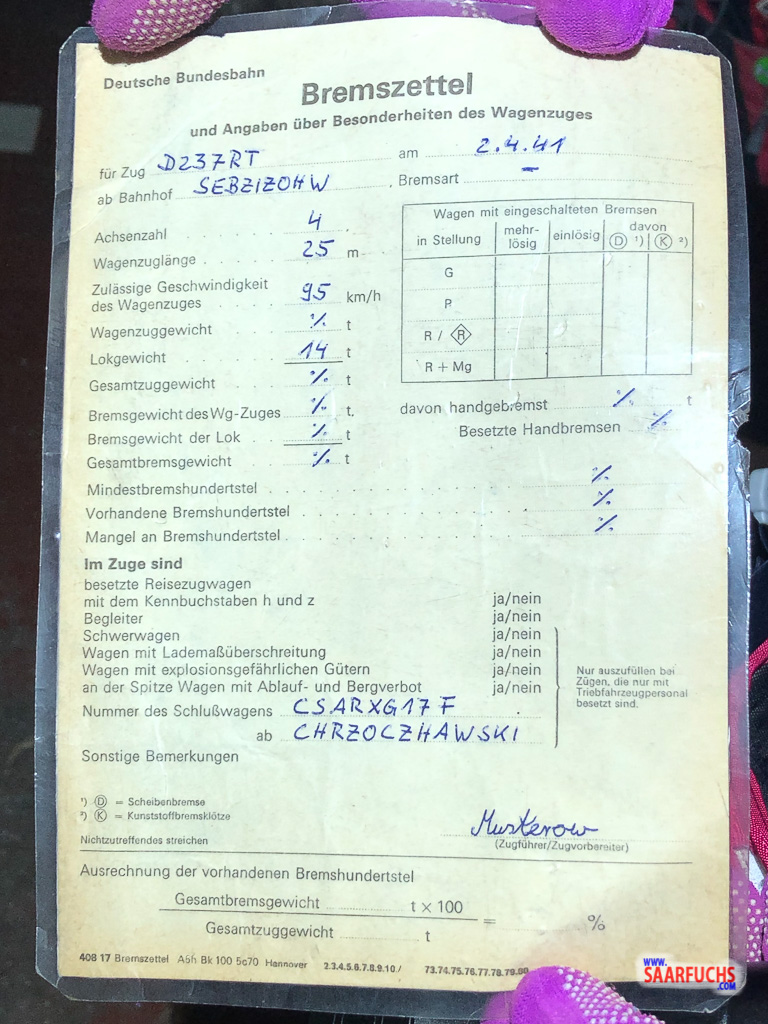 Deutsche Bundesbahn
Bremszettel
und Angaben über Besonderheiten des Wagenzuges
für Zug D237RT am 2.4.41
ab Bahnhof SEBZIZOHW . Bremsart –
Achsenzahl 4
Wagenzuglänge 25 m
Zulässige Geschwindigkeit
des Wagenzuges 95 km/h
Wagenzuggewicht ⁒ t
Lokgewicht 14 t
Gesamtzuggewicht ⁒ t
Bremsgewicht des Wg-Zuges ⁒ t.
Bremsgewicht der Lok ⁒ t
Gesamtbremsgewicht ⁒ t
Wagen mit eingeschalteten Bremsen
in Stellung mehr- einlösig davon
lösig Ⓓ ¹) Ⓚ ²)
G
P
R / R
R + Mg
davon handgebremst ⁒ t
Besetzte Handbremsen ⁒
Mindestbremshundertstel ⁒
Vorhandene Bremshundertstel ⁒
Mangel an Bremshundertstel ⁒
Im Zuge sind
besetzte Reisezugwagen
mit dem Kennbuchstaben h und z ja/nein
Begleiter ja/nein
Schwerwagen ja/nein
Wagen mit Lademaßüberschreitung ja/nein
Wagen mit explosionsgefährlichen Gütern ja/nein
an der Spitze Wagen mit Ablauf- und Bergverbot ja/nein
Nur auszufüllen bei
Zügen, die nur mit
Triebfahrzeugpersonal
besetzt sind.
Nummer des Schlußwagens CSARXG17F
ab CHRZOCZHAWSKI
Sonstige Bemerkungen
¹) Ⓓ = Scheibenbremse
²) Ⓚ = Kunststoffbremsklötze
Nichtzutreffendes streichen
Musterow
(Zugführer/Zugvorbereiter)
Ausrechnung der vorhandenen Bremshundertstel
Gesamtbremsgewicht t × 100
= %
Gesamtzuggewicht t
408 17 Bremszettel A5h Bk 100 5c70 Hannover 2.3.4.5.6.7.8.9.10./ 73.74.75.76.77.78.79.80
WWW.
SAARFUCHS
.COM